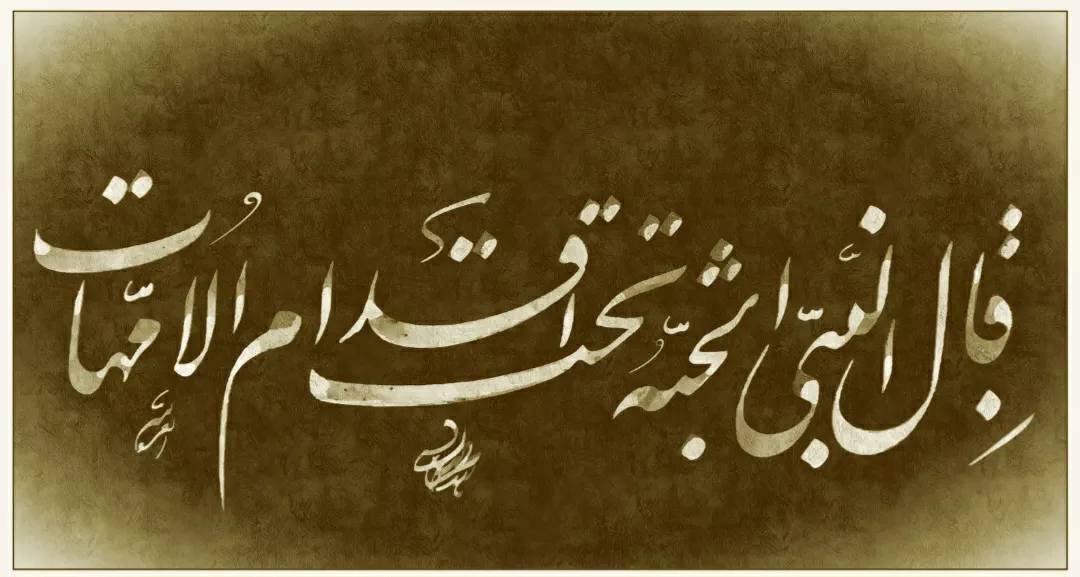 قال النبی الجنة تحت اقدام الامهات